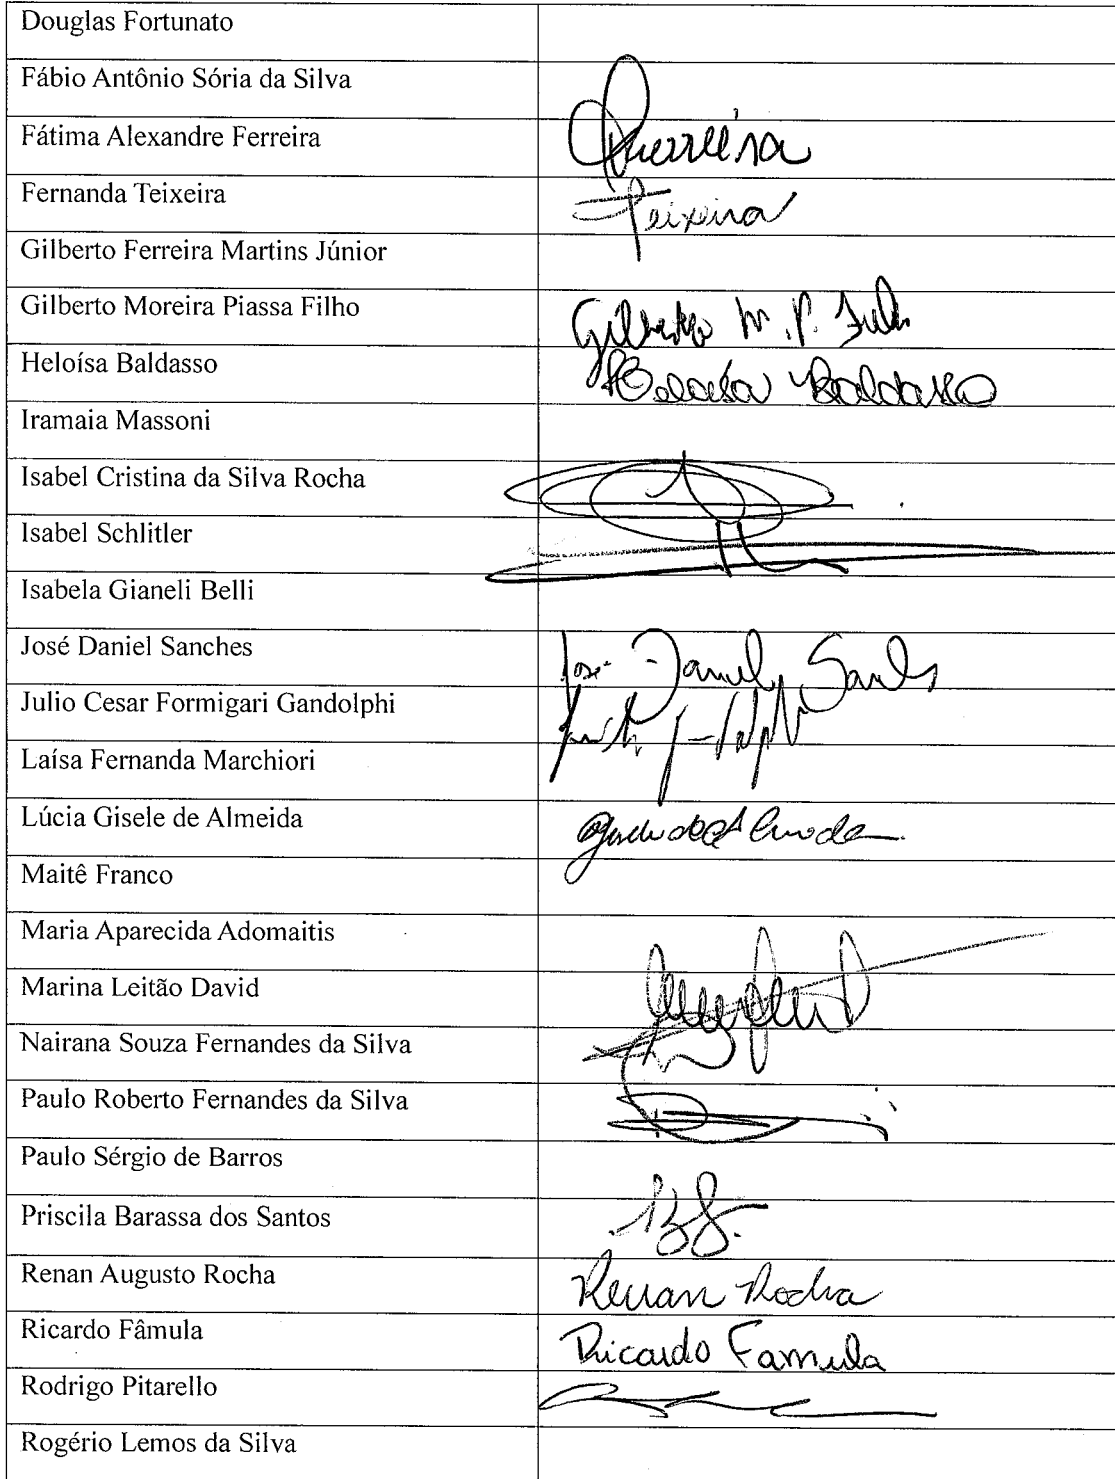 Douglas Fortunato
Fábio Antônio Sória da Silva
Fátima Alexandre Ferreira
Fernanda Teixeira Teixeira
Gilberto Ferreira Martins Júnior
Gilberto Moreira Piassa Filho Gilberto M. P. Filho
Heloísa Baldasso Heloísa Baldasso
Iramaia Massoni
Isabel Cristina da Silva Rocha
Isabel Schlitler
Isabela Gianeli Belli
José Daniel Sanches José Daniel
Julio Cesar Formigari Gandolphi
Laísa Fernanda Marchiori
Lúcia Gisele de Almeida
Maitê Franco
Maria Aparecida Adomaitis
Marina Leitão David
Nairana Souza Fernandes da Silva
Paulo Roberto Fernandes da Silva
Paulo Sérgio de Barros
Priscila Barassa dos Santos
Renan Augusto Rocha Renan Rocha
Ricardo Fâmula Ricardo Famula
Rodrigo Pitarello
Rogério Lemos da Silva